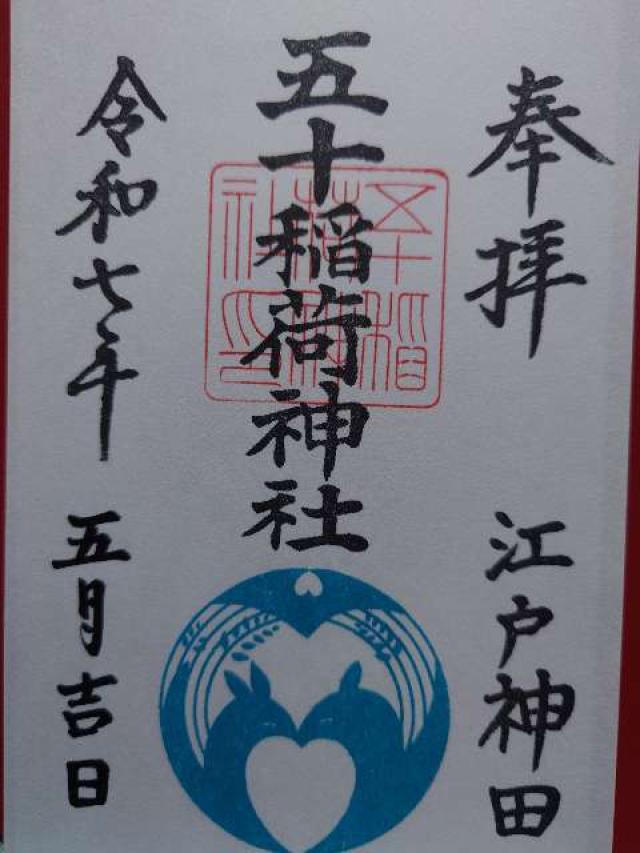 奉拝
江戸神田
五十稲荷神社
令和七年
五月吉日